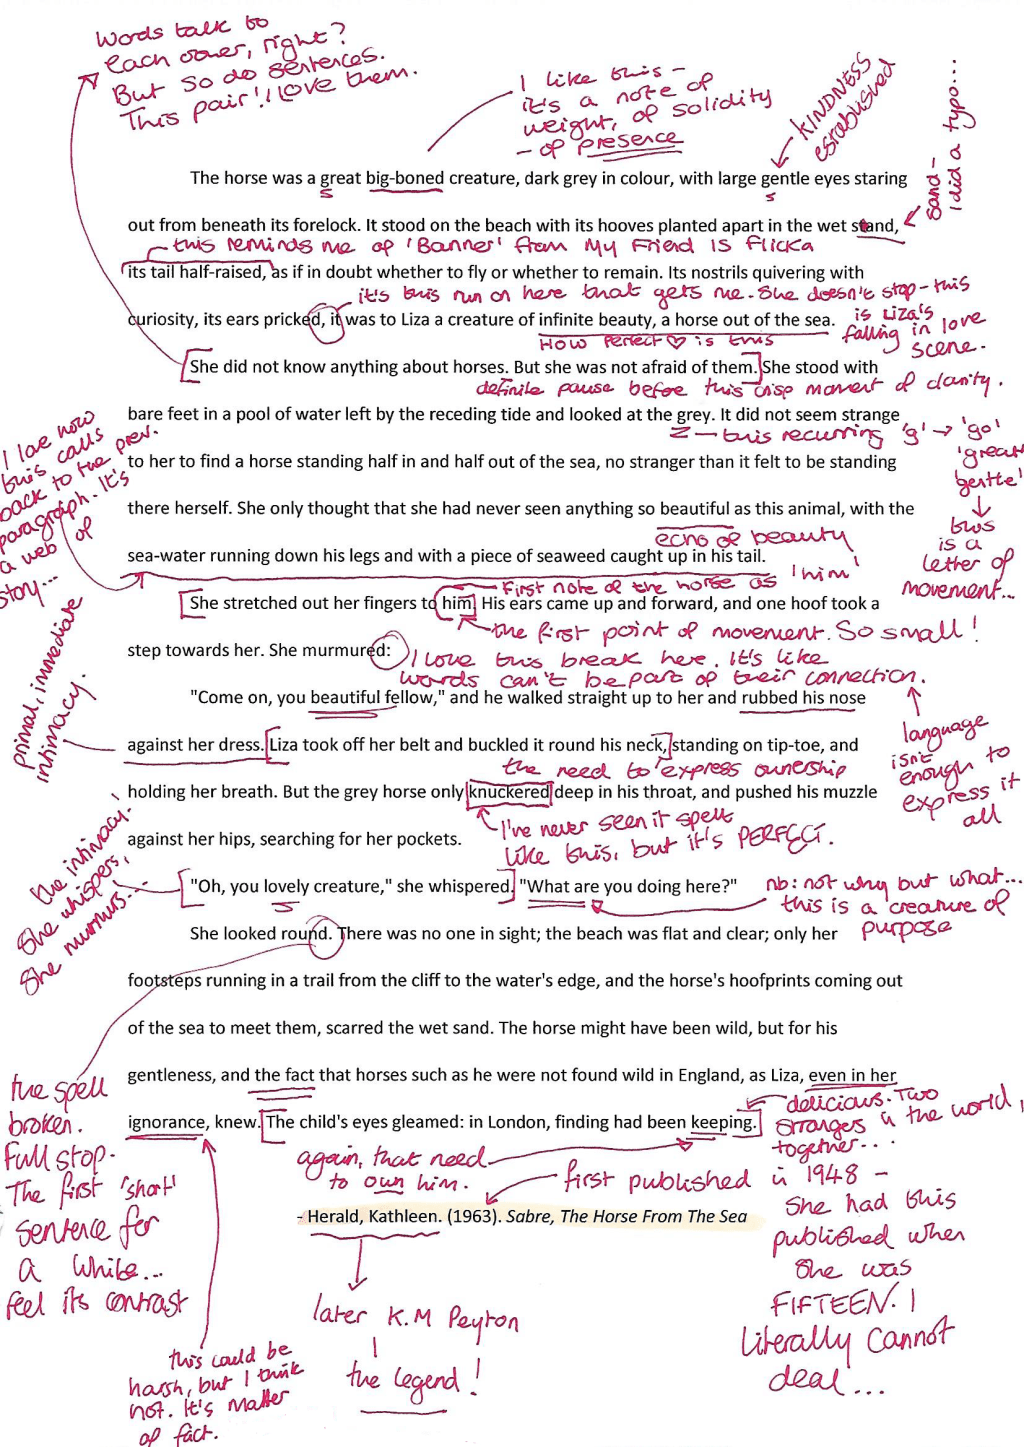 Words talk to
each other, right?
But so do sentences.
This pair! I LOVE them.
I like this -
it's a note of
weight, of solidity
- of presence
KINDNESS
established
Sand -
I did a typo...
The horse was a great big-boned creature, dark grey in colour, with large gentle eyes staring
s
s
out from beneath its forelock. It stood on the beach with its hooves planted apart in the wet stand,
this reminds me of 'Banner' from My Friend Is Flicka
its tail half-raised, as if in doubt whether to fly or whether to remain. Its nostrils quivering with
it's this run on here that gets me. She doesn't stop - this
is Liza's
falling in love
scene.
curiosity, its ears pricked, it was to Liza a creature of infinite beauty, a horse out of the sea.
HOW PERFECT ♡ is this
She did not know anything about horses. But she was not afraid of them. She stood with
definite pause before this crisp moment of clarity.
bare feet in a pool of water left by the receding tide and looked at the grey. It did not seem strange
this recurring 'g' → 'go'
'great'
'gentle'
↓
this
is a
letter of
movement...
I love how
this calls
back to the prev.
paragraph. It's
a web of
story...
to her to find a horse standing half in and half out of the sea, no stranger than it felt to be standing
there herself. She only thought that she had never seen anything so beautiful as this animal, with the
echo of beauty
sea-water running down his legs and with a piece of seaweed caught up in his tail.
First note of the horse as 'him'
She stretched out her fingers to him. His ears came up and forward, and one hoof took a
the first point of movement. So small!
step towards her. She murmured:
I love this break here. It's like
words can't be part of their connection.
language
isn't
enough to
express it
all
"Come on, you beautiful fellow," and he walked straight up to her and rubbed his nose
primal, immediate
intimacy.
against her dress. Liza took off her belt and buckled it round his neck, standing on tip-toe, and
the need to express ownership
holding her breath. But the grey horse only knuckered deep in his throat, and pushed his muzzle
I've never seen it spelt
like this, but it's PERFECT.
against her hips, searching for her pockets.
the intimacy.
She whispers,
She murmurs...
"Oh, you lovely creature," she whispered. "What are you doing here?"
nb: not why but what...
this is a creature of
purpose
She looked round. There was no one in sight; the beach was flat and clear; only her
footsteps running in a trail from the cliff to the water's edge, and the horse's hoofprints coming out
of the sea to meet them, scarred the wet sand. The horse might have been wild, but for his
gentleness, and the fact that horses such as he were not found wild in England, as Liza, even in her
ignorance, knew. The child's eyes gleamed: in London, finding had been keeping.
the spell
broken.
Full stop.
The first 'short'
sentence for
a while...
feel its contrast
delicious. Two
strangers in the world,
together...
again, that need
to own him.
first published in 1948 -
She had this
published when
she was
FIFTEEN. I
literally cannot
deal...
- Herald, Kathleen. (1963). Sabre, The Horse From The Sea
later K.M Peyton
the legend!
this could be
harsh, but I think
not. It's matter
of fact.